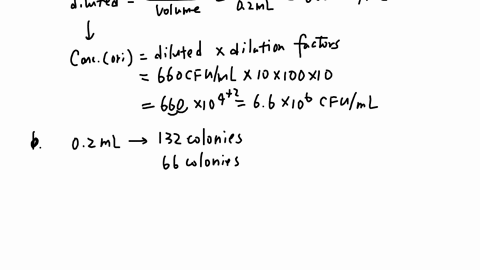 diluted = Volume 0.2mL
↓
Conc.(ori) = diluted × dilution factors
= 660 CFU/mL × 10 × 100 × 10
= 660 × 10^4+2 = 6.6 × 10^6 CFU/mL
b. 0.2 mL → 132 colonies
66 colonies